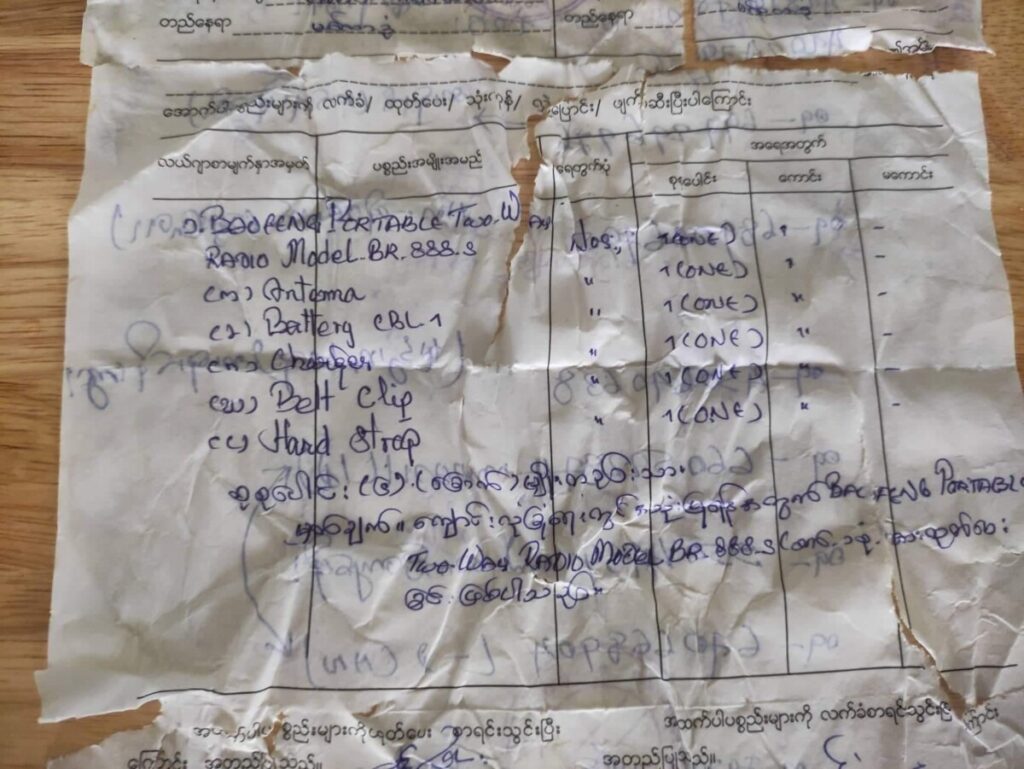 တည်နေရာ တည်နေရာ
အောက်ပါပစ္စည်းများကို လက်ခံ/ ထုတ်ပေး/ သုံးကုန်/ လွှဲပြောင်း/ ပျက်စီးပြီးပါကြောင်း
လယ်ဂျာစာမျက်နှာအမှတ် ပစ္စည်းအမျိုးအမည် ရေတွက်ပုံ အရေအတွက်
စုစုပေါင်း ကောင်း မကောင်း
၁. BAOFENG PORTABLE TWO.WAY Nos., 1(ONE) " -
RADIO Model.BR.888.S " 1(ONE) " -
(က) Antenna " 1(ONE) " -
(ခ) Battery CBL 1 " 1(ONE) " -
(ဂ) " 1(ONE) " -
(ဃ) Belt Clip " 1(ONE) " -
(င) Hand Strap
စုစုပေါင်း (၆) (ခြောက်) မျိုးတည်းသာ။
မှတ်ချက်။ ကျောင်းလုံခြုံရေးတွင် အသုံးပြုရန်အတွက် BAOFENG PORTABLE
TWO.WAY RADIO MODEL.BR.888.S
ခြင်းဖြစ်ပါသည်။
အထက်ပါပစ္စည်းများကိုထုတ်ပေး စာရင်းသွင်းပြီး အထက်ပါပစ္စည်းများကို လက်ခံစာရင်းသွင်းပြီးကြောင်း
ကြောင်း အတည်ပြုသည်။ အတည်ပြုသည်။